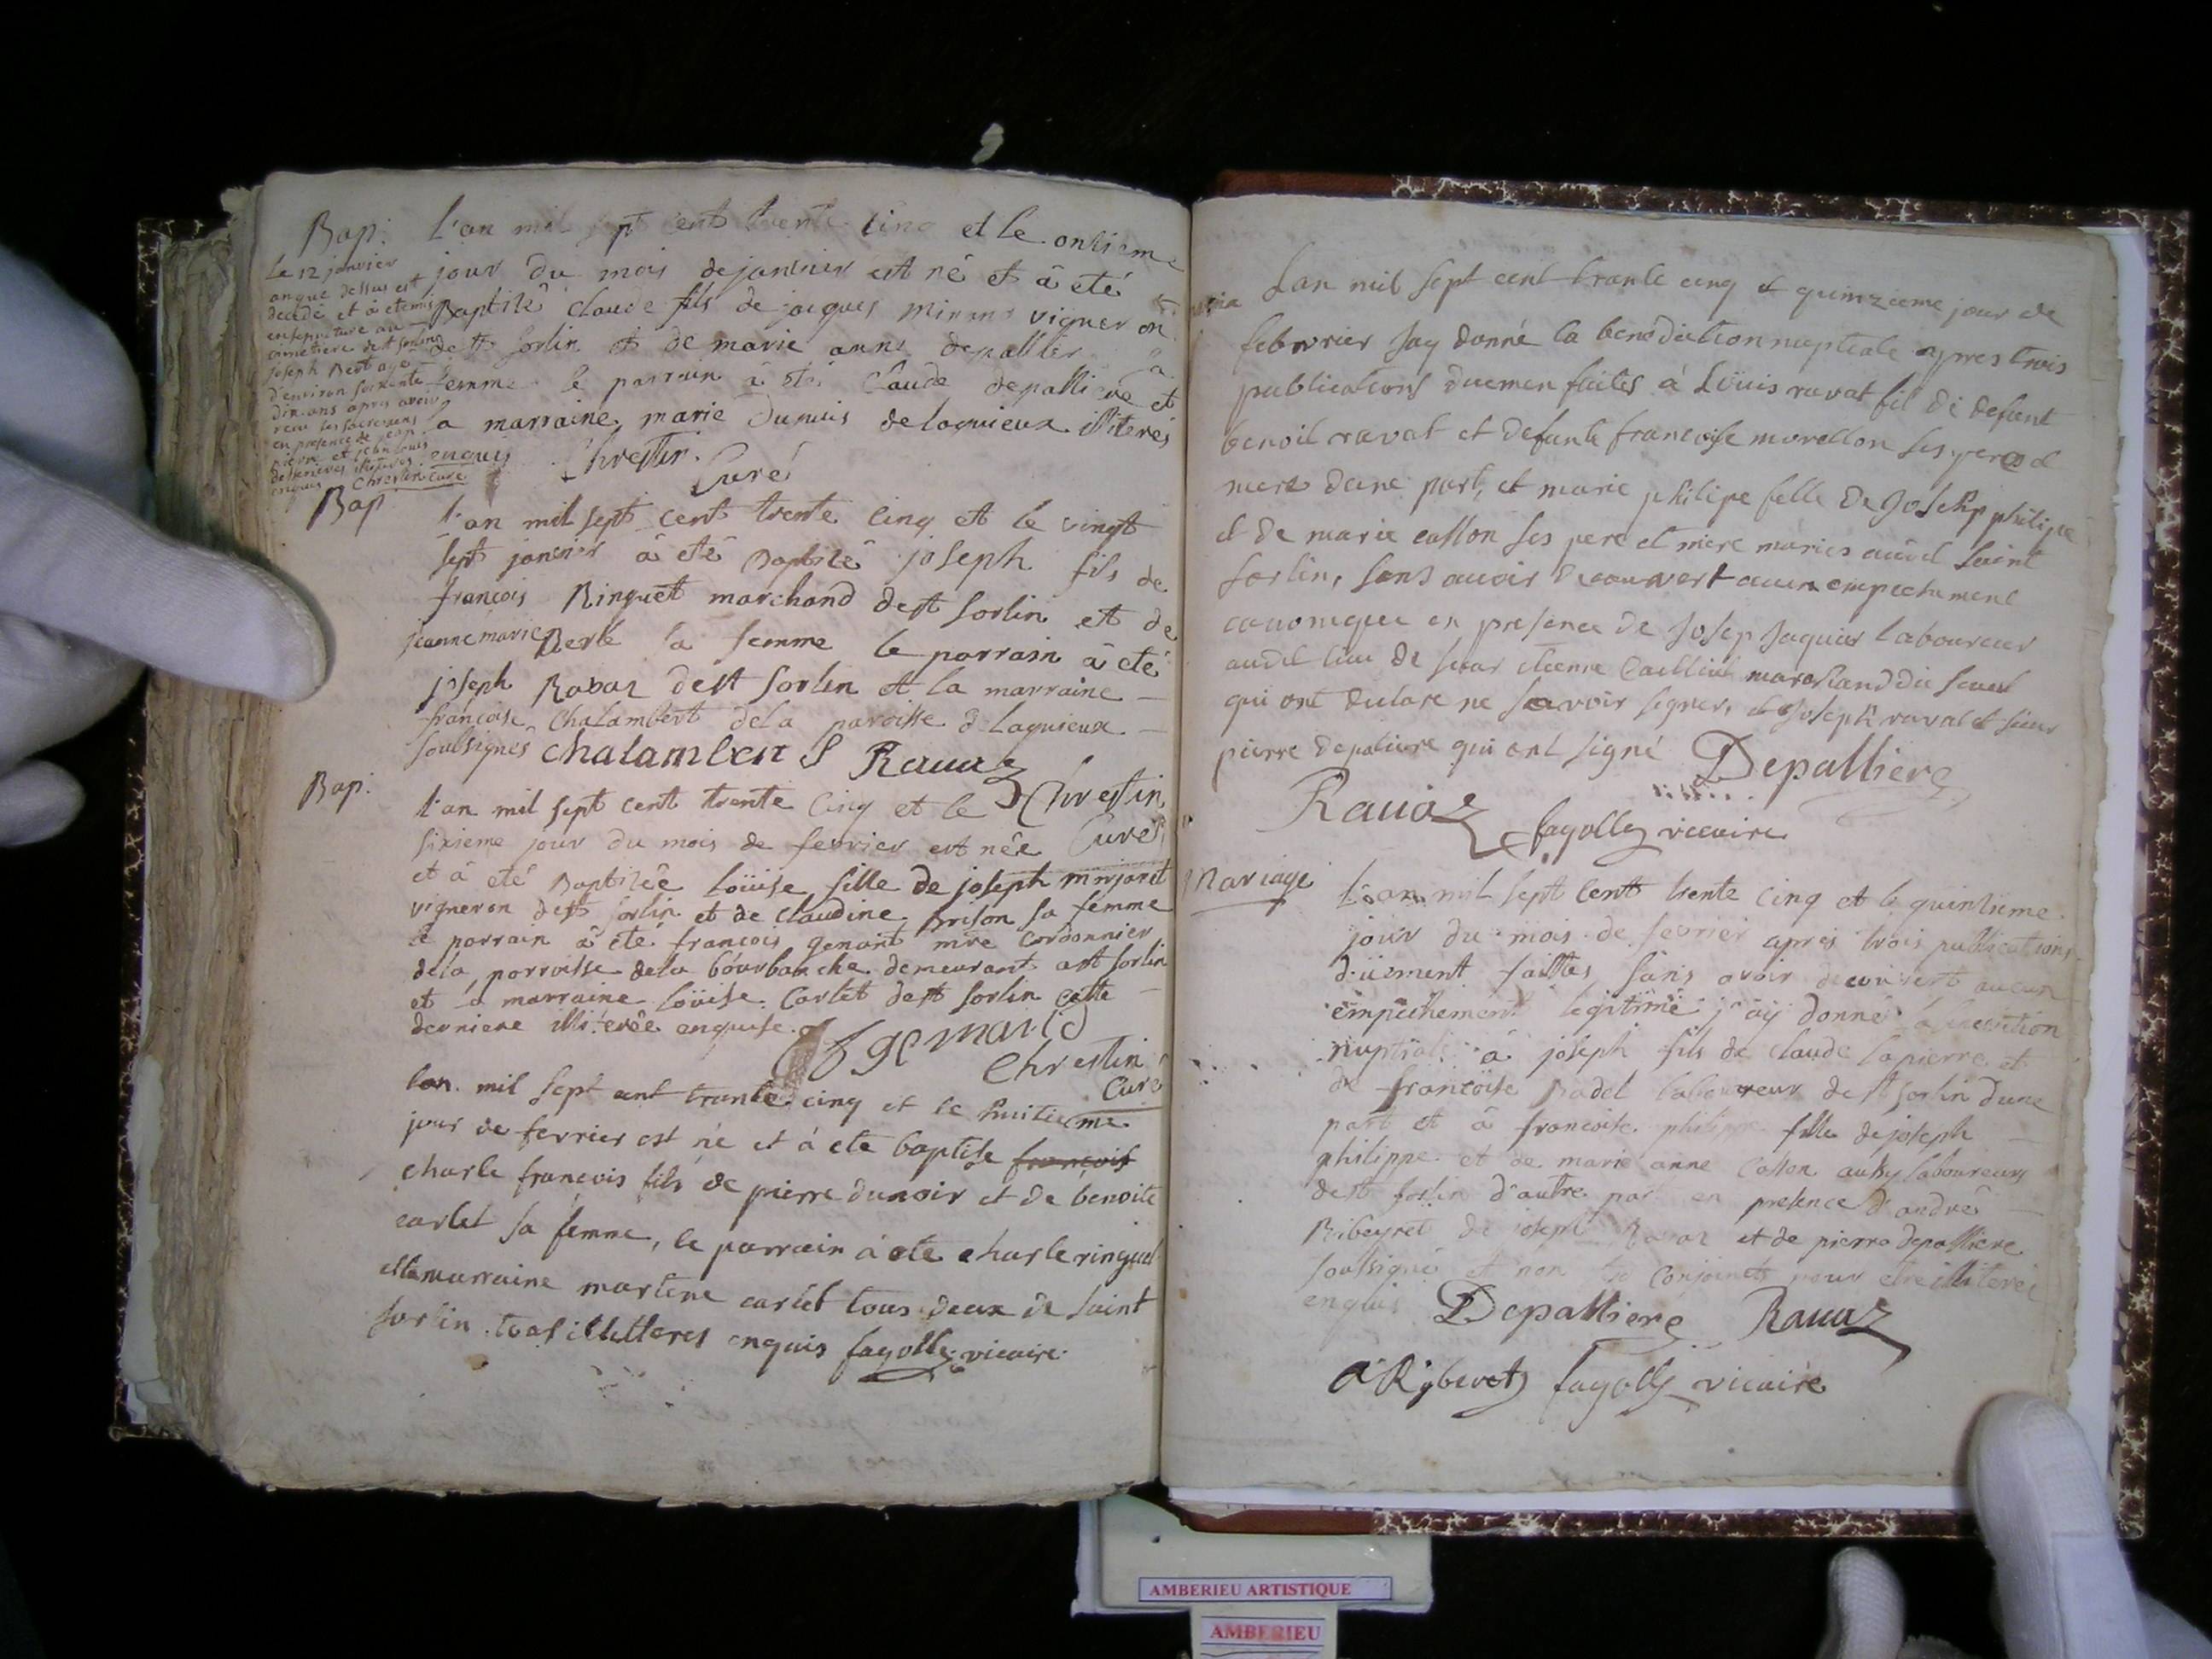 Bap.
l'an mil sept cent trente cinq et le onzieme
jour du mois de janvier est né et â eté
Baptisé claude fils de jacques vigneron
de st sorlin et de marie anne depallier sa
femme le parrain â eté claude depalliere et
la marraine marie dunuis de lagnieux illiterés
enquis Chrestin
Curé
le 12 janvier
an que dessus est
decedé et â eté mis
en sepulture au
cimetiere de st sorlin
joseph Berl agé
d'environ soixente
dix ans apres avoir
recu les sacremens
en presence de jean
pierre et jean louis
illiterés
enquis Chrestin curé
Bap.
l'an mil sept cent trente cinq et le vingt
sept janvier â eté Baptisé joseph fils de
françois Ringuet marchand de st sorlin et de
jeanne marie Berle sa femme le parrain â eté
joseph Ravaz de st sorlin et la marraine
françoise Chalambert de la paroisse d lagnieux
soubsignés chalambert Rauaz
Chrestin
Curé
Bap.
l'an mil sept cent trente cinq et le
sixieme jour du mois de fevrier est née
et â eté Baptisée loüise fille de joseph minjaret
vigneron de st sorlin et de claudine Brison sa femme
le parrain â eté francois genant mre cordonnier
de la parroisse de la bourbanche demeurant a st sorlin
et la marraine loüise Carlet de st sorlin cette
derniere illiterée enquise
Chrestin
Curé
lan mil sept cent trante cinq et le huitieme
jour de fevrier est né et à ete baptise françois
charle francois fils de pierre dunoir et de benoite
carlet sa femme, le parrain à ete charle ringuet
et la marraine martene carlet tous deux de saint
sorlin tous illitteres enquis fayolle vicaire
Lan mil sept cent trante cinq et quinzieme jour de
febvrier jay donné la benediction nuptiale apres trois
publications duemen faites à Loüis ravat fil de defunt
benoit ravat et defunte francoise morellon ses pere et
mere dune part, et marie philipe felle de Joseph philipe
et de marie casson ses pere et mere mariés audit saint
sorlin, sans avoir decouvert aucun empechement
canonique en presence de Josep Jaquier laboureur
audit lieu de sieur etienne Caillat marchand du
qui ont declare ne savoir signer, et Joseph ravat et sieur
pierre depaliere qui ont signé Depalliere
Rauaz fayolle viccaire
Mariage
L'an mil sept cent trente cinq et le quinzieme
jour du mois de fevrier apres trois publications
düement faittes sans avoir decouvert aucun
empéchement legitime j'aÿ donné la benediction
nuptiale â joseph fils de claude lapierre et
de francoise Badel laboureur de st sorlin d'une
part et â francoise philippe fille de joseph
philippe et de marie anne Casson aussy laboureurs
de st sorlin d'autre part en presence d'andré
Ribeyret de joseph Ravaz et de pierre depalliere
soubsigné et non les conjoints pour etre illiterés
enquis Depalliere Rauaz
a Rÿberet fayolle vicaire
AMBERIEU ARTISTIQUE
AMBERIEU